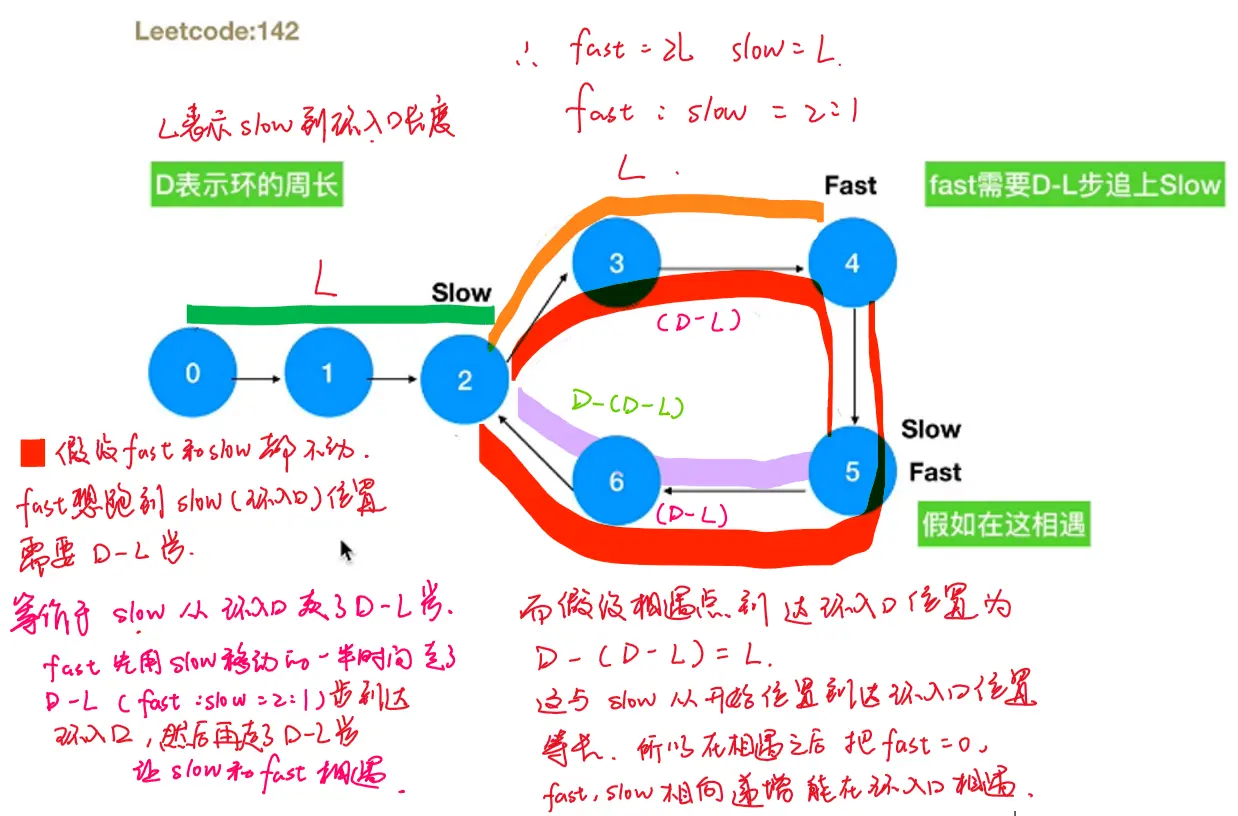 Leetcode:142
∴ fast = 2L slow = L.
fast : slow = 2:1
L表示slow到环入口长度
D表示环的周长
L.
Fast
fast需要D-L步追上Slow
L
Slow
3
4
(D-L)
0
1
2
D-(D-L)
Slow
Fast
6
5
(D-L)
假如在这相遇
假设fast和slow都不动.
fast想跑到slow(环入口)位置
需要D-L步.
等价于 slow 从环入口走了D-L步.
fast先用slow移动的一半时间走了
D-L (fast:slow=2:1)步到达
环入口,然后再走了D-L步
让slow和fast相遇.
而假设相遇点到达环入口位置为
D-(D-L)=L.
这与slow从开始位置到达环入口位置
等长.所以在相遇之后把fast=0,
fast,slow相向递增能在环入口相遇.